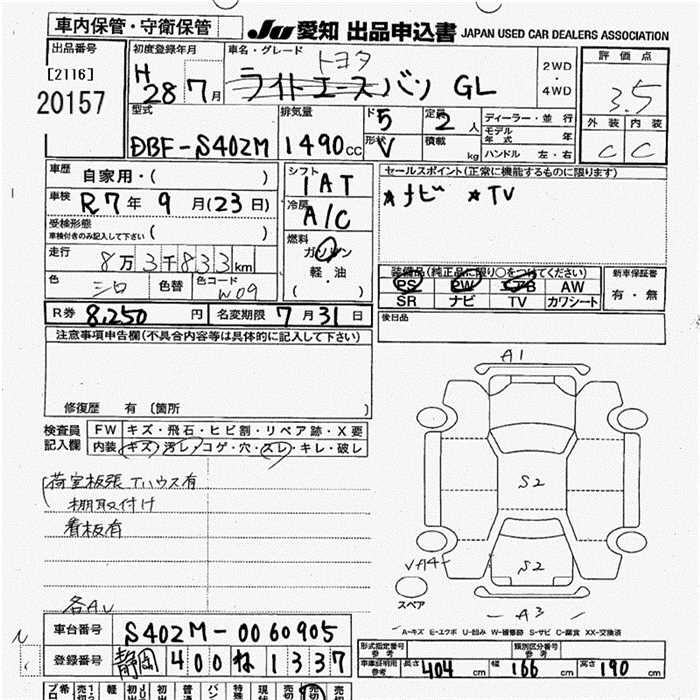 車内保管・守衛保管
JU 愛知 出品申込書 JAPAN USED CAR DEALERS ASSOCIATION
出品番号
[2116]
20157
初度登録年月
H28 7月
車名・グレード
トヨタ
ライトエースバン GL
2WD・4WD
評価点
3.5
外装 内装
C C
型式
DBF-S402M
排気量
1490cc
ドア 5
形状 V
定員 2人
積載 kg
ディーラー・並行
モデル年式 年
ハンドル 左・右
車歴
自家用・( )
車検
R7年9月(23日)
受検形態
車検付きのみ記入して下さい ( )
走行
8万3千833km
色 シロ 色替 色コード W09
シフト
IAT
冷房
A/C
燃料
ガソリン
軽・油
( )
セールスポイント(正常に機能するものに限ります)
★ナビ ★TV
装備品(純正品に限り○をつけてください)
PS PW エアB AW
SR ナビ TV カワシート
新車保証書
有・無
R券 8,250円 名変期限 7月31日
後日品
注意事項申告欄(不具合内容等は具体的に記入して下さい)
修復歴 有 〔箇所 〕
検査員記入欄
FW キズ・飛石・ヒビ割・リペア跡・X要
内装 キズ・汚レ・コゲ・穴・スレ・キレ・破レ
荷室板張Tハウス有
棚取付け
看板有
各AU
A1
S2
S2
A4
A3
スペア
A-キズ E-エクボ U-凹み W-補修跡 S-サビ C-腐食 XX-交換済
車台番号 S402M-0060905
登録番号 静岡 400 ね 1337
形式指定番号 類別区分番号
車庫証明用参考 長さ 404cm 幅 166cm 高さ 190cm